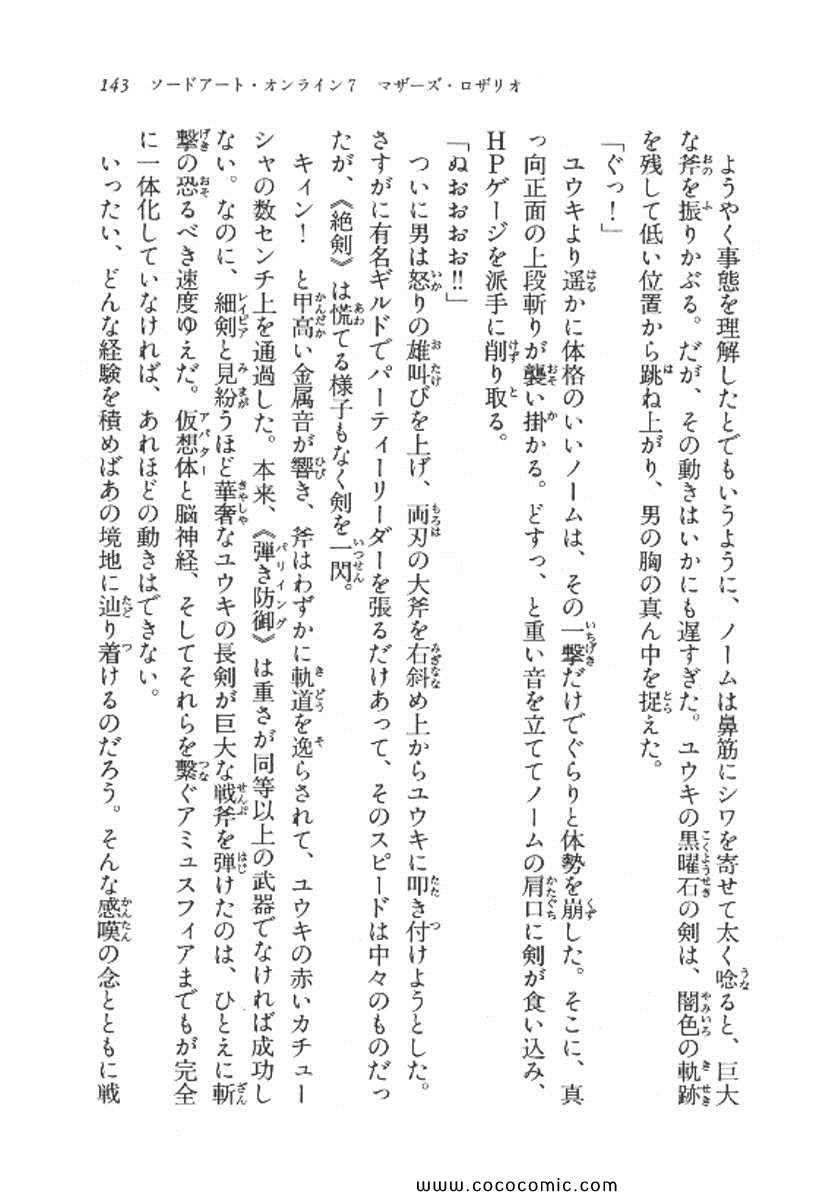 143 ソードアート・オンライン7 マザーズ・ロザリオ
ようやく事態を理解したとでもいうように、ノームは鼻筋にシワを寄せて太く唸ると、巨大
な斧を振りかぶる。だが、その動きはいかにも遅すぎた。ユウキの黒曜石の剣は、闇色の軌跡
を残して低い位置から跳ね上がり、男の胸の真ん中を捉えた。
「ぐっ！」
ユウキより遥かに体格のいいノームは、その一撃だけでぐらりと体勢を崩した。そこに、真
っ向正面の上段斬りが襲い掛かる。どすっ、と重い音を立ててノームの肩口に剣が食い込み、
HPゲージを派手に削り取る。
「ぬぉおぉお!!」
ついに男は怒りの雄叫びを上げ、両刃の大斧を右斜め上からユウキに叩き付けようとした。
さすがに有名ギルドでパーティーリーダーを張るだけあって、そのスピードは中々のものだっ
たが、《絶剣》は慌てる様子もなく剣を一閃。
キィン！　と甲高い金属音が響き、斧はわずかに軌道を逸らされて、ユウキの赤いカチュー
シャの数センチ上を通過した。本来、《弾き防御》は重さが同等以上の武器でなければ成功し
ない。なのに、細剣と見紛うほど華奢なユウキの長剣が巨大な戦斧を弾けたのは、ひとえに斬
撃の恐るべき速度ゆえだ。仮想体と脳神経、そしてそれらを繋ぐアミュスフィアまでもが完全
に一体化していなければ、あれほどの動きはできない。
いったい、どんな経験を積めばあの境地に辿り着けるのだろう。そんな感嘆の念とともに戦
www.cococomic.com